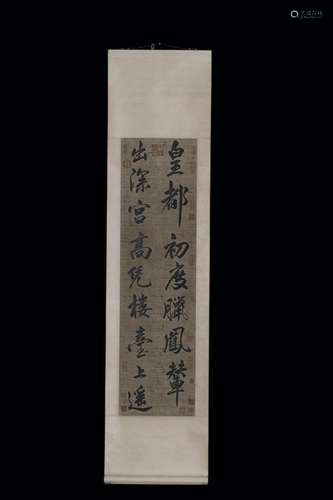 皇都初度臘鳳輦
出深宮高凭樓臺上遥